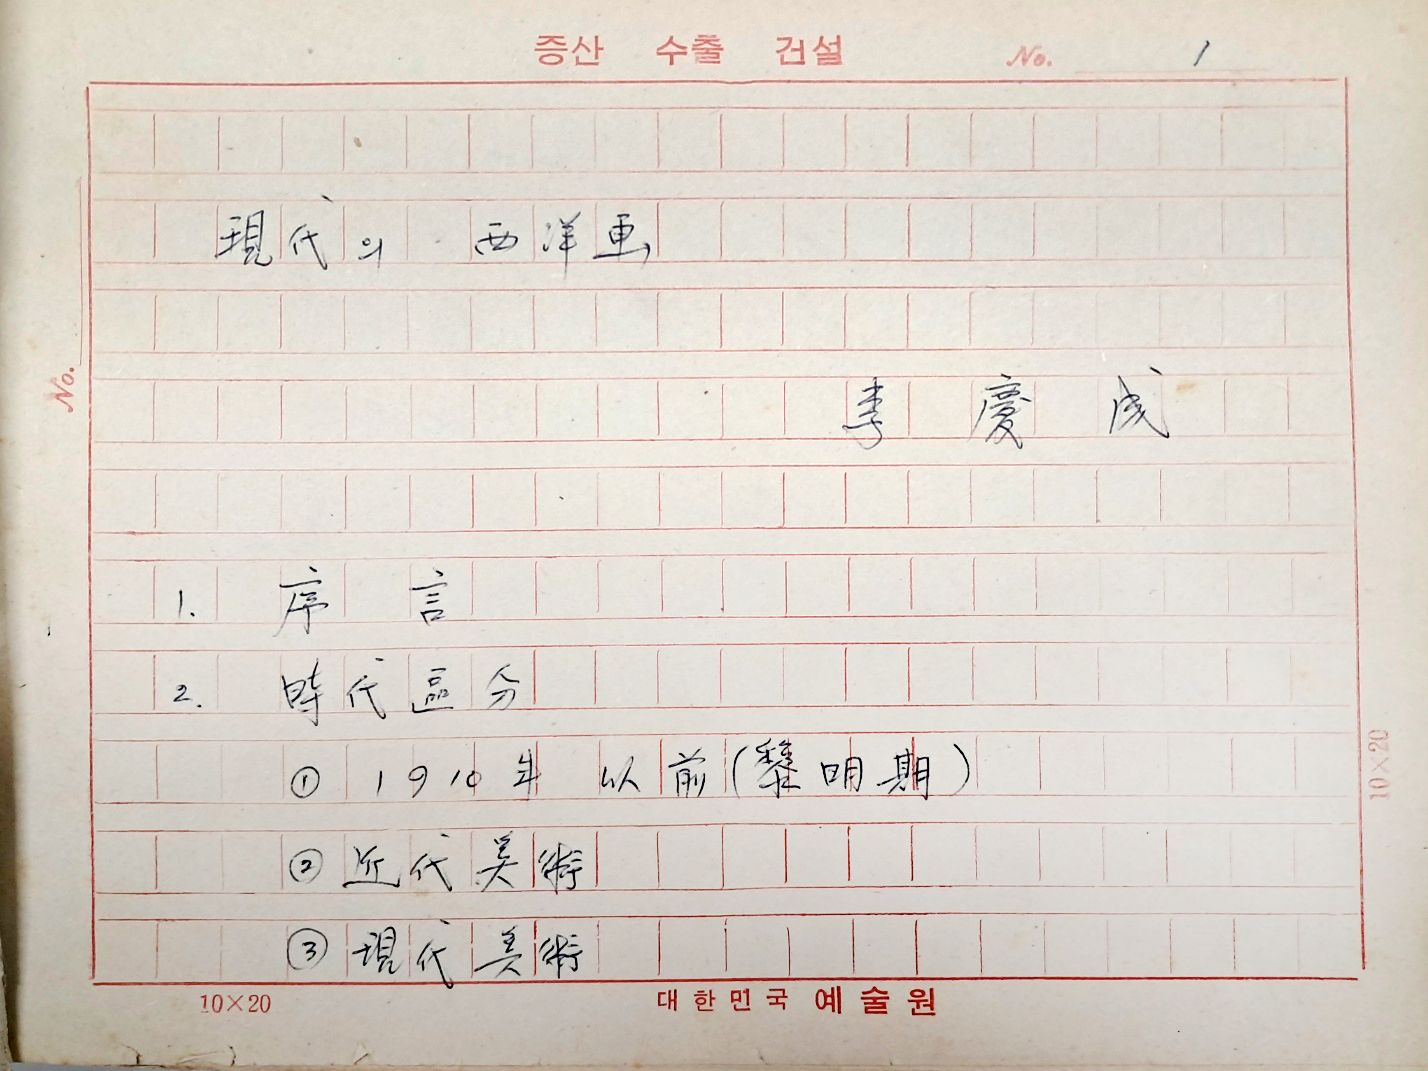 증산 수출 건설 No. 1
現代의 西洋画
No.
李慶成
1. 序言
2. 時代區分
① 1910年 以前(黎明期)
10×20
② 近代美術
③ 現代美術
10×20 대한민국 예술원